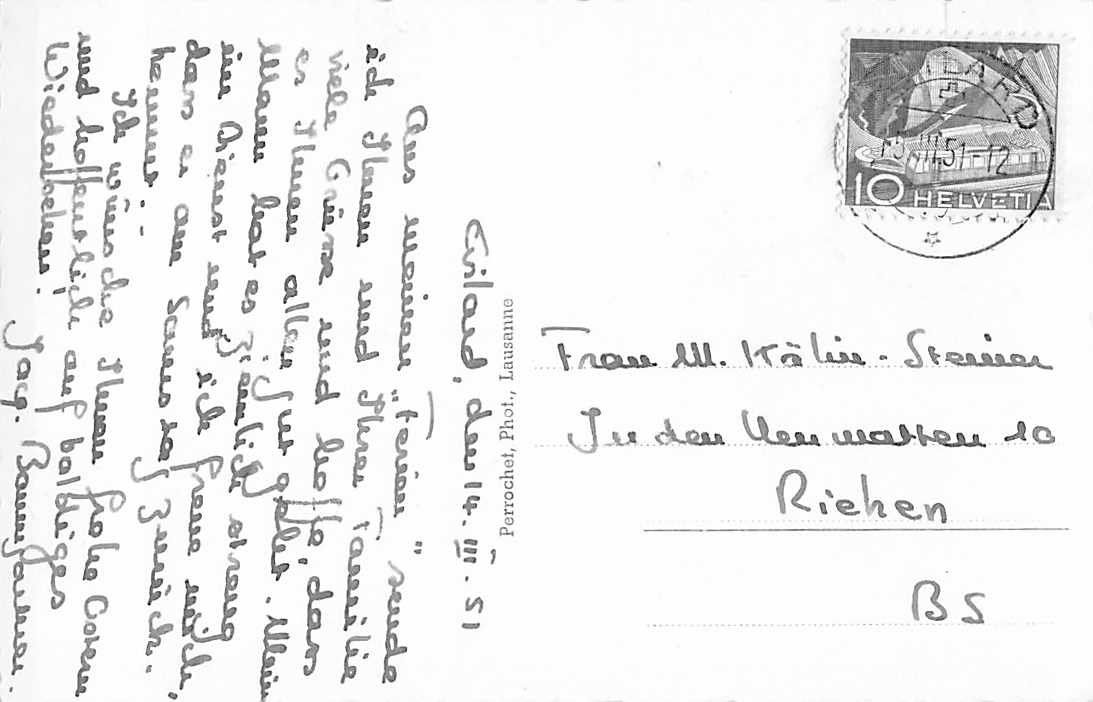 Evilard, den 14. III. 51
Aus meinen "Ferien" sende
ich Ihnen und Ihrer Familie
viele Grüsse und hoffe, dass
es Ihnen allen gut geht. Mein
Mann hat es ziemlich streng
im Dienst und ich freue mich,
dass er am Samstag zurück-
kommt.
Ich wünsche Ihnen frohe Ostern
und hoffentlich auf baldiges
Wiedersehen!
Baumgartner.
Perrochet, Phot., Lausanne
EVILARD
III.51-12
10 HELVETIA
Frau M. Kälin-Steiner
In den Neumatten 10
Riehen
BS